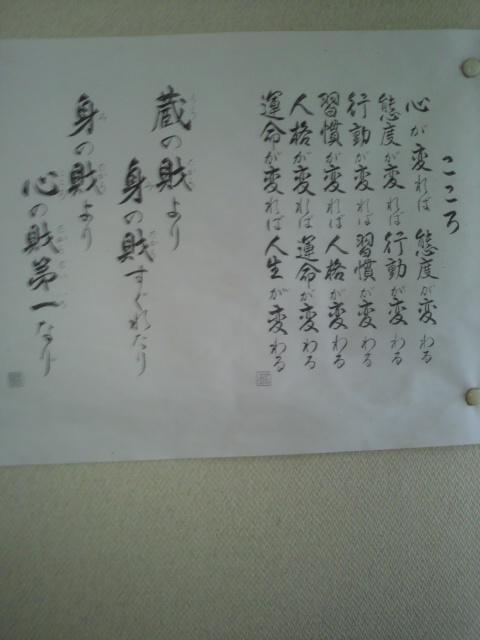 こころ
心が変れば 態度が変わる
態度が変れば 行動が変わる
行動が変れば 習慣が変わる
習慣が変れば 人格が変わる
人格が変れば 運命が変わる
運命が変れば 人生が変わる
蔵の財より
身の財すぐれたり
身の財より
心の財第一なり